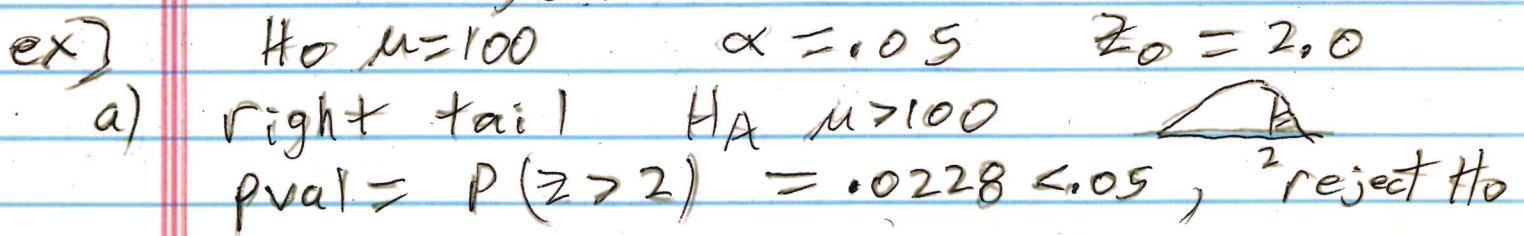 ex] H₀ μ=100 α=.05 z₀=2.0
a) right tail H_A μ>100
2
pval= P(z>2) = .0228 <.05, reject H₀